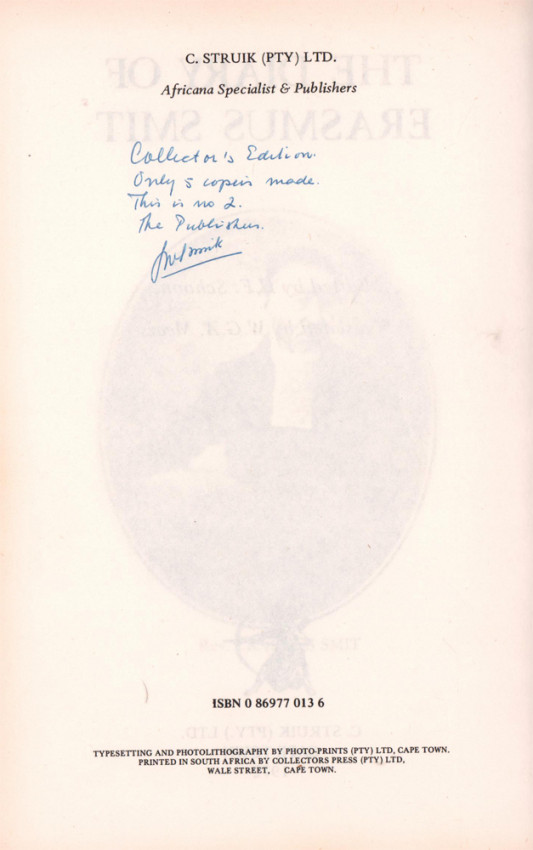 C. STRUIK (PTY) LTD.
Africana Specialist & Publishers
Collector's Edition.
Only 5 copies made.
This is no 2.
The Publishers.
THE DIARY OF
ERASMUS SMIT
ISBN 0 86977 013 6
C. STRUIK (PTY.) LTD.
TYPESETTING AND PHOTOLITHOGRAPHY BY PHOTO-PRINTS (PTY) LTD, CAPE TOWN.
PRINTED IN SOUTH AFRICA BY COLLECTORS PRESS (PTY) LTD,
WALE STREET, CAPE TOWN.